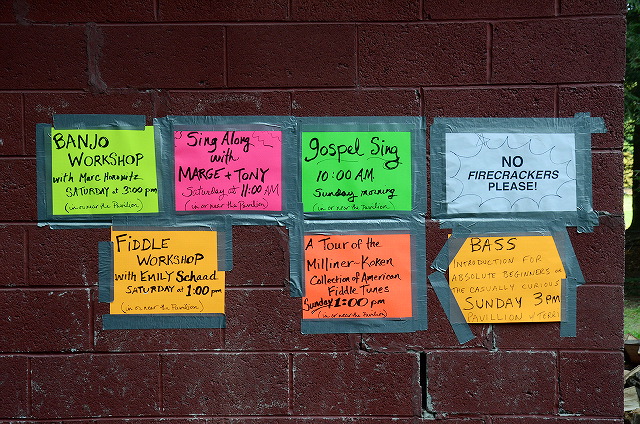 BANJO
WORKSHOP
with Marc Horowitz
SATURDAY at 3:00 pm
(in or near the Pavilion)
Sing Along
with
MARGE + TONY
Saturday at 11:00 AM
(in or near the Pavilion)
gospel Sing
10:00 AM
Sunday morning
(in or near the Pavilion)
NO
FIRECRACKERS
PLEASE!
FIDDLE
WORKSHOP
with EMILY Schaad
SATURDAY at 1:00 pm
(in or near the Pavilion)
A Tour of the
Milliner-Koken
Collection of American
Fiddle Tunes
Sunday 1:00 pm
(in or near the Pavilion)
BASS
INTRODUCTION FOR
ABSOLUTE BEGINNERS or
THE CASUALLY CURIOUS
SUNDAY 3PM
PAVILLION W TERRI